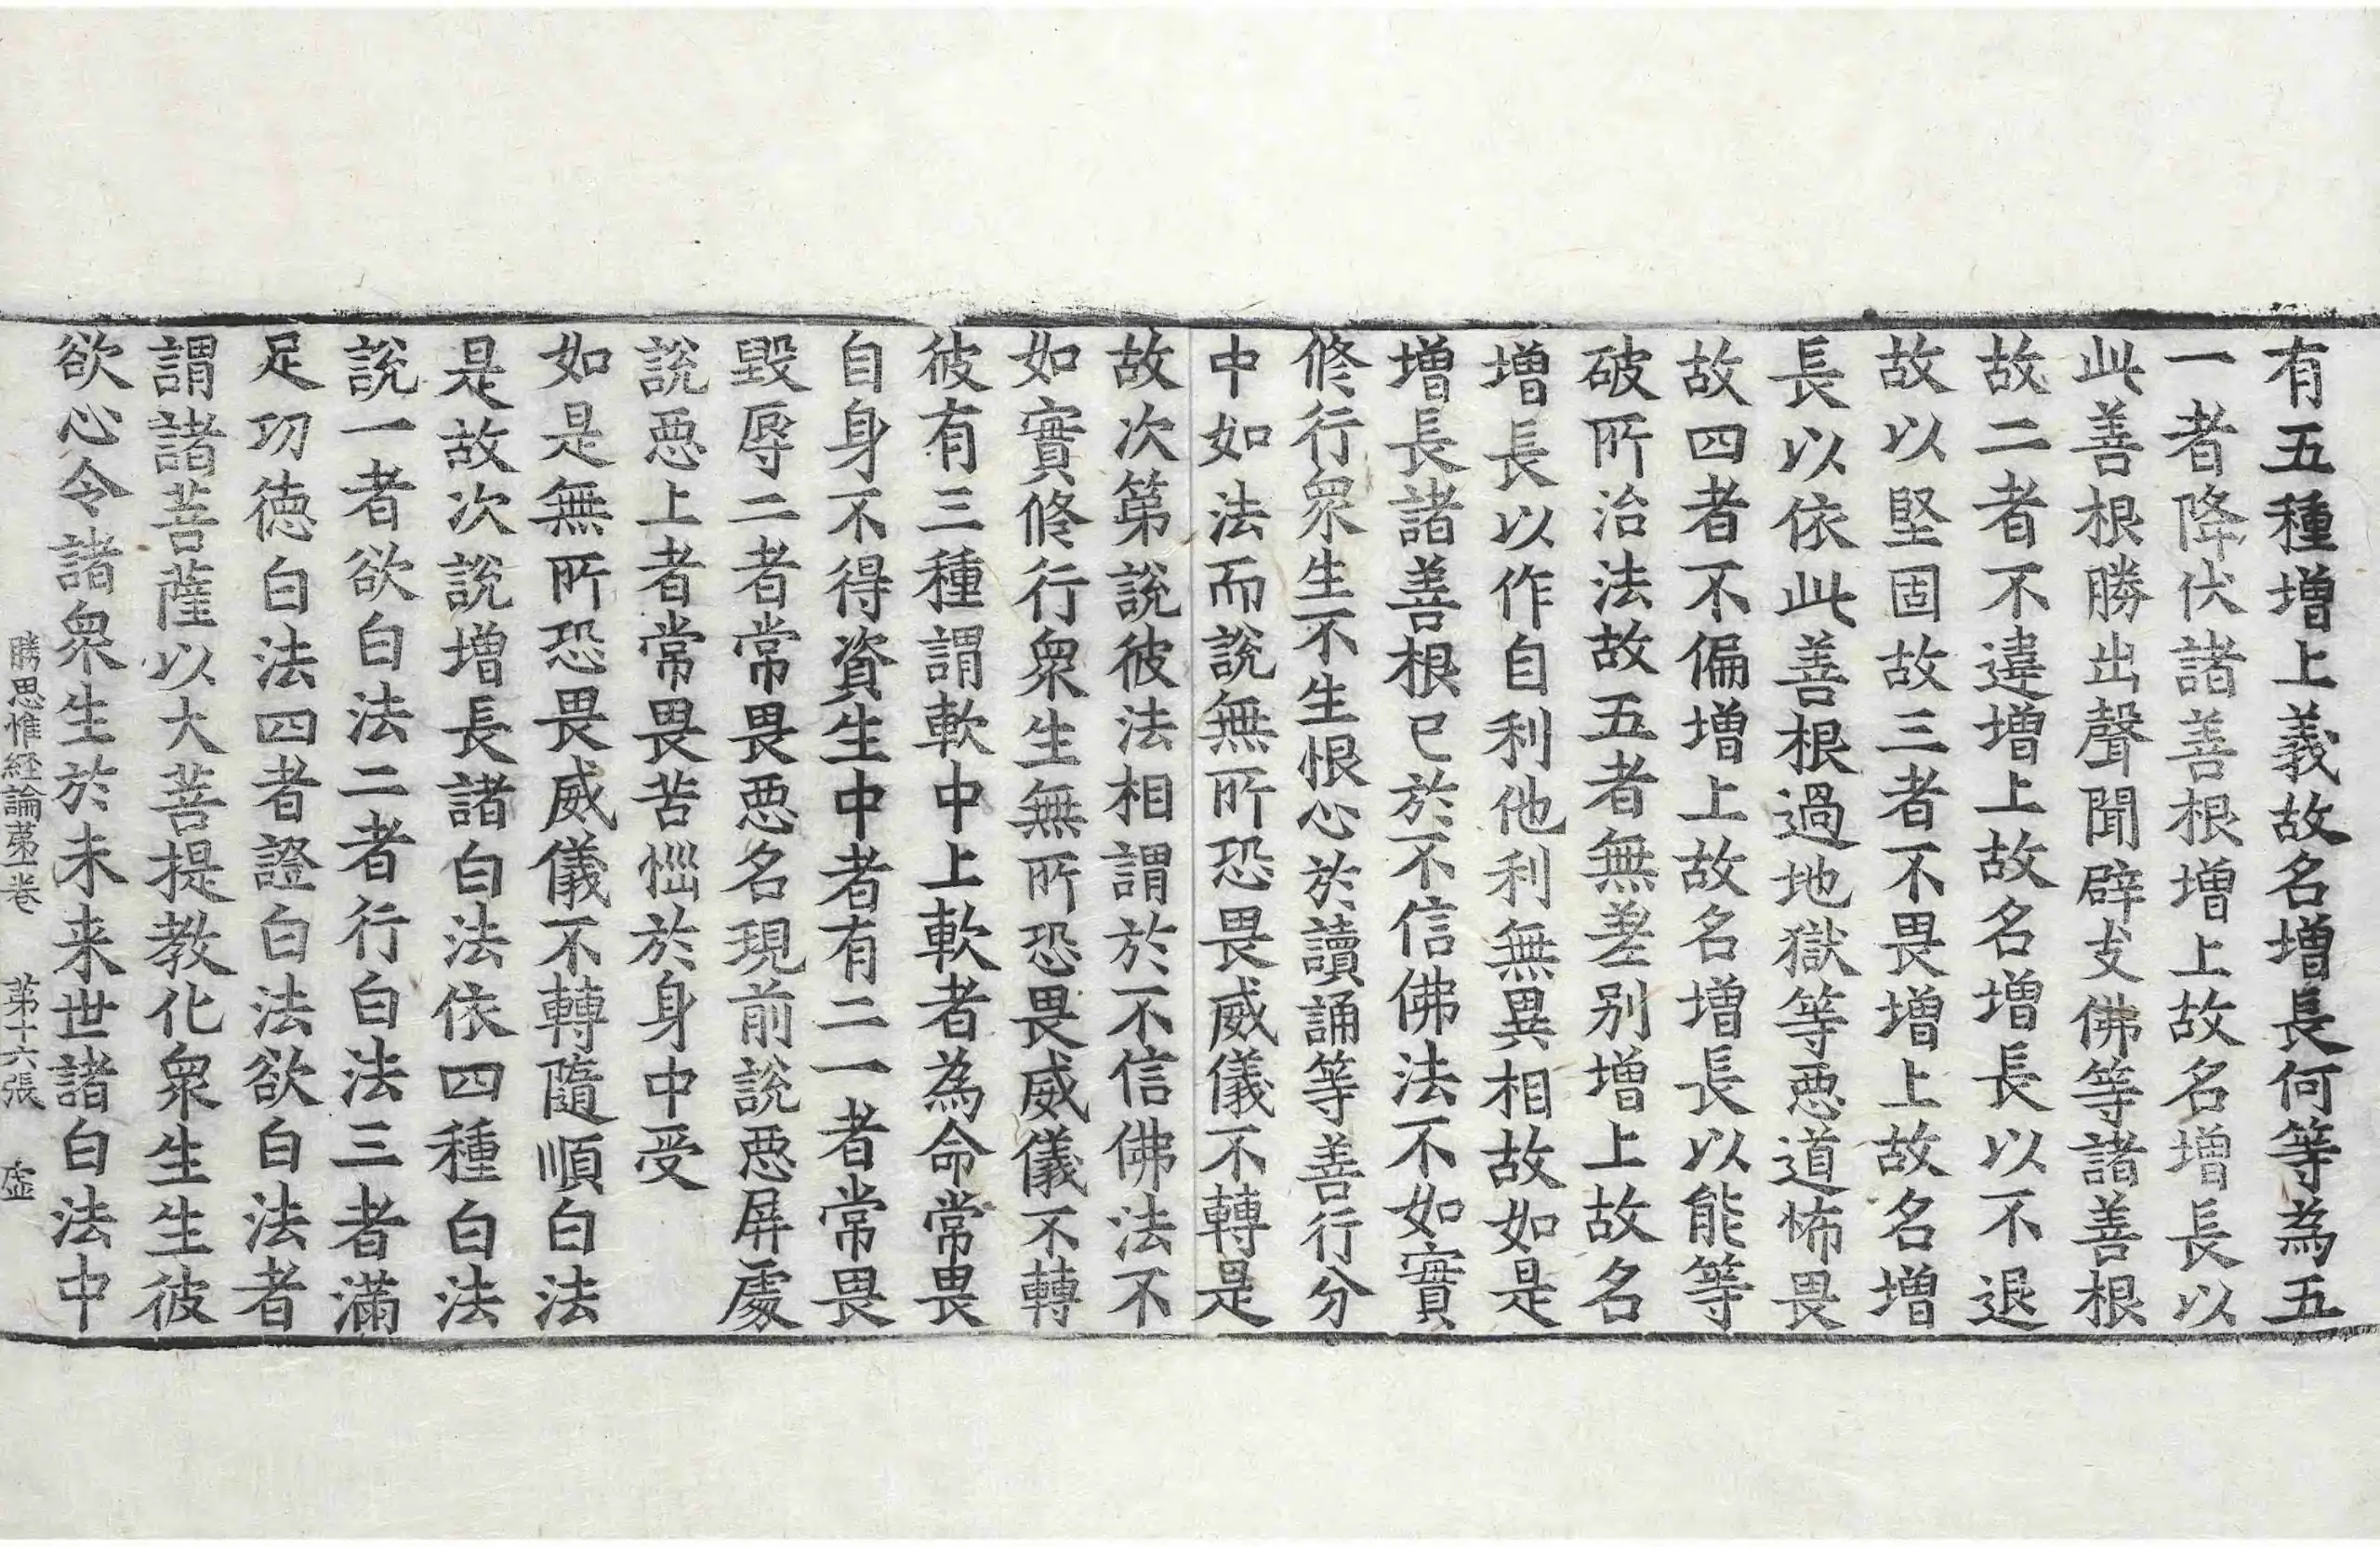 有五種增上義故名增長何等為五
一者降伏諸善根增上故名增長以
此善根勝出聲聞辟支佛等諸善根
故二者不違增上故名增長以不退
故以堅固故三者不畏增上故名增
長以依此善根過地獄等惡道怖畏
故四者不偏增上故名增長以能等
破所治法故五者無差別增上故名
增長以作自利他利無異相故如是
增長諸善根已於不信佛法不如實
修行眾生不生恨心於讀誦等善行分
中如法而說無所恐畏威儀不轉是
故次第說彼法相謂於不信佛法不
如實修行眾生無所恐畏威儀不轉
彼有三種謂軟中上軟者為命常畏
自身不得資生中者有二一者常畏
毀辱二者常畏惡名現前說惡屏處
說惡上者常畏苦惱於身中受
如是無所恐畏威儀不轉隨順白法
是故次說增長諸白法依四種白法
說一者欲白法二者行白法三者滿
足功德白法四者證白法欲白法者
謂諸菩薩以大菩提教化眾生生彼
欲心令諸眾生於未来世諸白法中
勝思惟経論苐一卷 苐十六張 虛